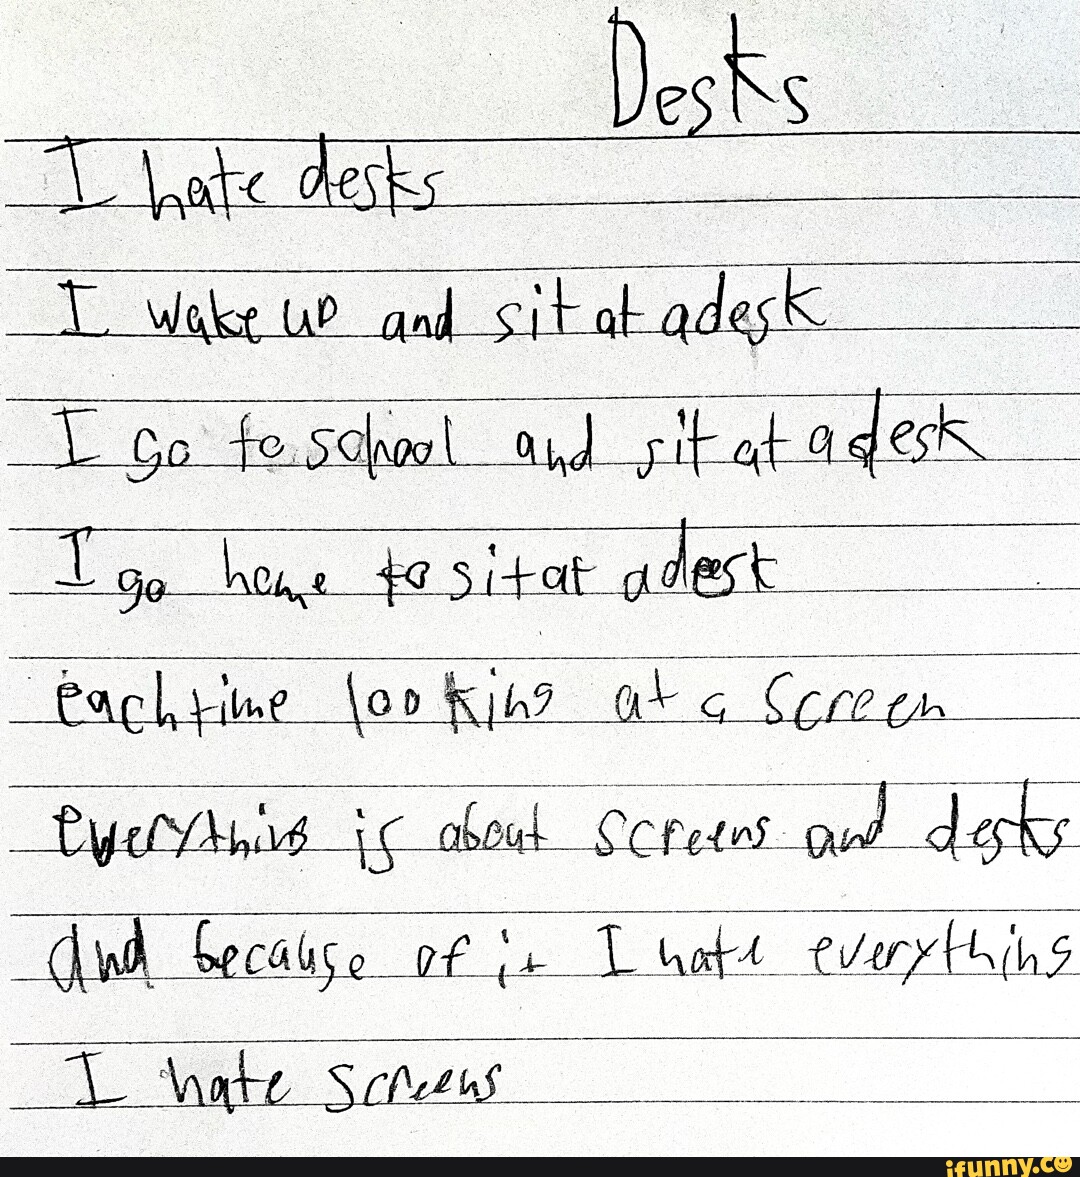 Desks
I hate desks
I wake up and sit at a desk
I go to school and sit at a desk
I go home to sit at a desk
each time looking at a screen
everything is about screens and desks
and because of it I hate everything
I hate screens
ifunny.co